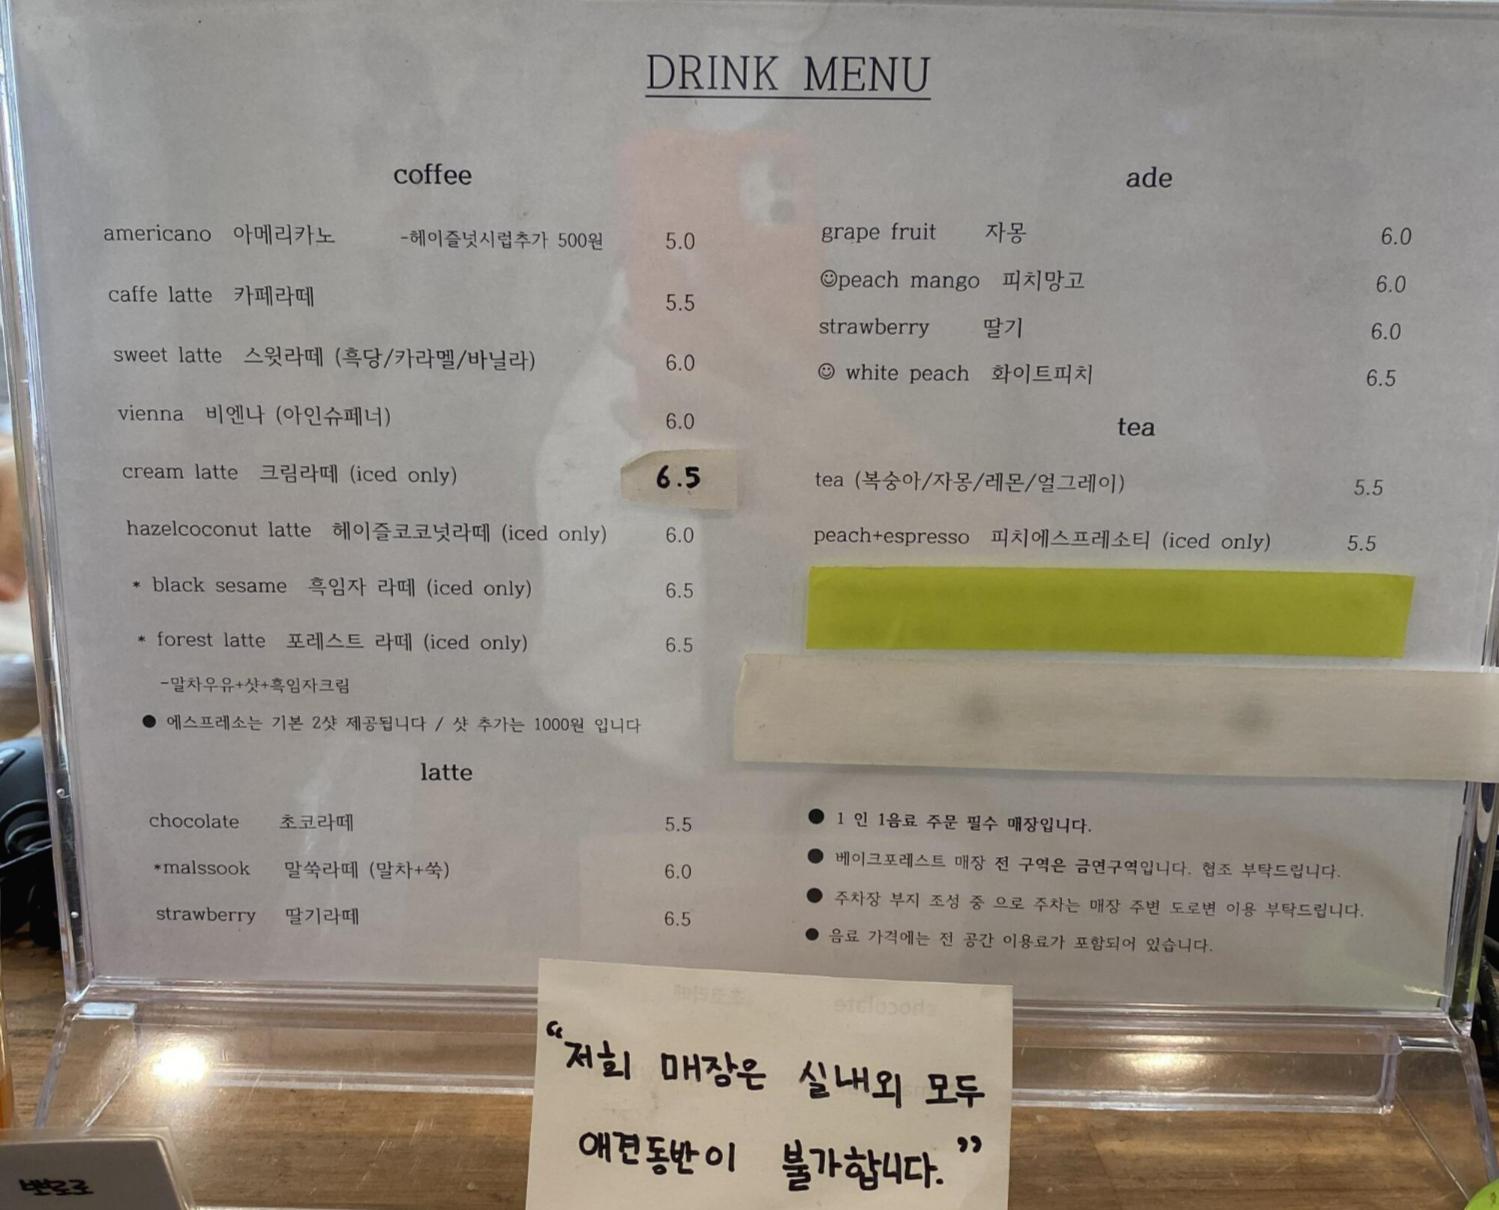 DRINK MENU
coffee
americano 아메리카노 -헤이즐넛시럽추가 500원 5.0
caffe latte 카페라떼 5.5
sweet latte 스윗라떼 (흑당/카라멜/바닐라) 6.0
vienna 비엔나 (아인슈페너) 6.0
cream latte 크림라떼 (iced only) 6.5
hazelcoconut latte 헤이즐코코넛라떼 (iced only) 6.0
* black sesame 흑임자 라떼 (iced only) 6.5
* forest latte 포레스트 라떼 (iced only) 6.5
-말차우유+샷+흑임자크림
● 에스프레소는 기본 2샷 제공됩니다 / 샷 추가는 1000원 입니다
latte
chocolate 초코라떼 5.5
*malssook 말쑥라떼 (말차+쑥) 6.0
strawberry 딸기라떼 6.5
ade
grape fruit 자몽 6.0
☺peach mango 피치망고 6.0
strawberry 딸기 6.0
☺ white peach 화이트피치 6.5
tea
tea (복숭아/자몽/레몬/얼그레이) 5.5
peach+espresso 피치에스프레소티 (iced only) 5.5
● 1 인 1음료 주문 필수 매장입니다.
● 베이크포레스트 매장 전 구역은 금연구역입니다. 협조 부탁드립니다.
● 주차장 부지 조성 중 으로 주차는 매장 주변 도로변 이용 부탁드립니다.
● 음료 가격에는 전 공간 이용료가 포함되어 있습니다.
“저희 매장은 실내외 모두
애견동반이 불가합니다.”